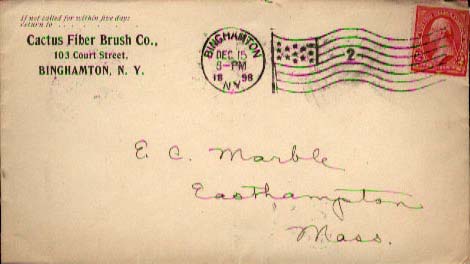 If not called for within five days
return to
Cactus Fiber Brush Co.,
103 Court Street,
BINGHAMTON, N. Y.
BINGHAMTON
DEC 15
8-PM
18 98
N.Y.
2
E. C. Marble
Easthampton
Mass.